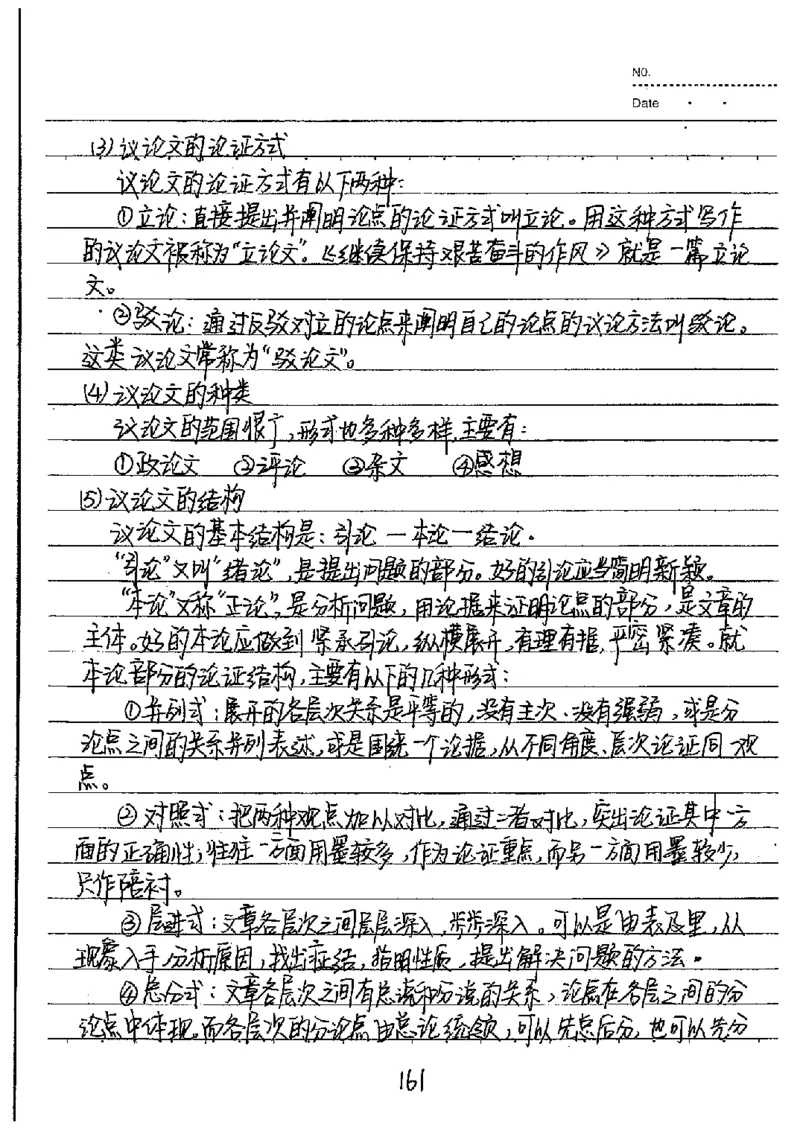 NO.
Date
(3)议论文的论证方式
议论文的论证方式有以下两种:
①立论:直接提出并阐明论点的论证方式叫立论。用这种方式写作
的议论文被称为“立论文”。《继续保持艰苦奋斗的作风》就是一篇立论
文。
②驳论:通过反驳对立的论点来阐明自己的论点的议论方法叫驳论。
这类议论文常称为“驳论文”。
(4)议论文的种类
议论文的范围很广,形式也多种多样,主要有:
①政论文 ②评论 ③杂文 ④感想
(5)议论文的结构
议论文的基本结构是:引论—本论—结论。
“引论”又叫“绪论”,是提出问题的部分。好的引论应当简明新颖。
“本论”又称“正论”,是分析问题,用论据来证明论点的部分,是文章的
主体。好的本论应做到紧承引论,纵横展开,有理有据,严密紧凑。就
本论部分的论证结构,主要有以下的几种形式:
①并列式:展开的各层次关系是平等的,没有主次、没有强弱,或是分
论点之间的关系并列表述,或是围绕一个论据,从不同角度、层次论证同一观
点。
②对照式:把两种观点加以对比,通过二者对比,突出论证其中一方
面的正确性;往往一方面用墨较多,作为论证重点,而另一方面用墨较少,
只作陪衬。
③层进式:文章各层次之间层层深入,步步深入。可以是由表及里,从
现象入手,分析原因,找出症结,指明性质,提出解决问题的方法。
④总分式:文章各层次之间有总说和分说的关系,论点在各层之间的分
论点中体现,而各层次的分论点由总论统领,可以先总后分,也可以先分
161